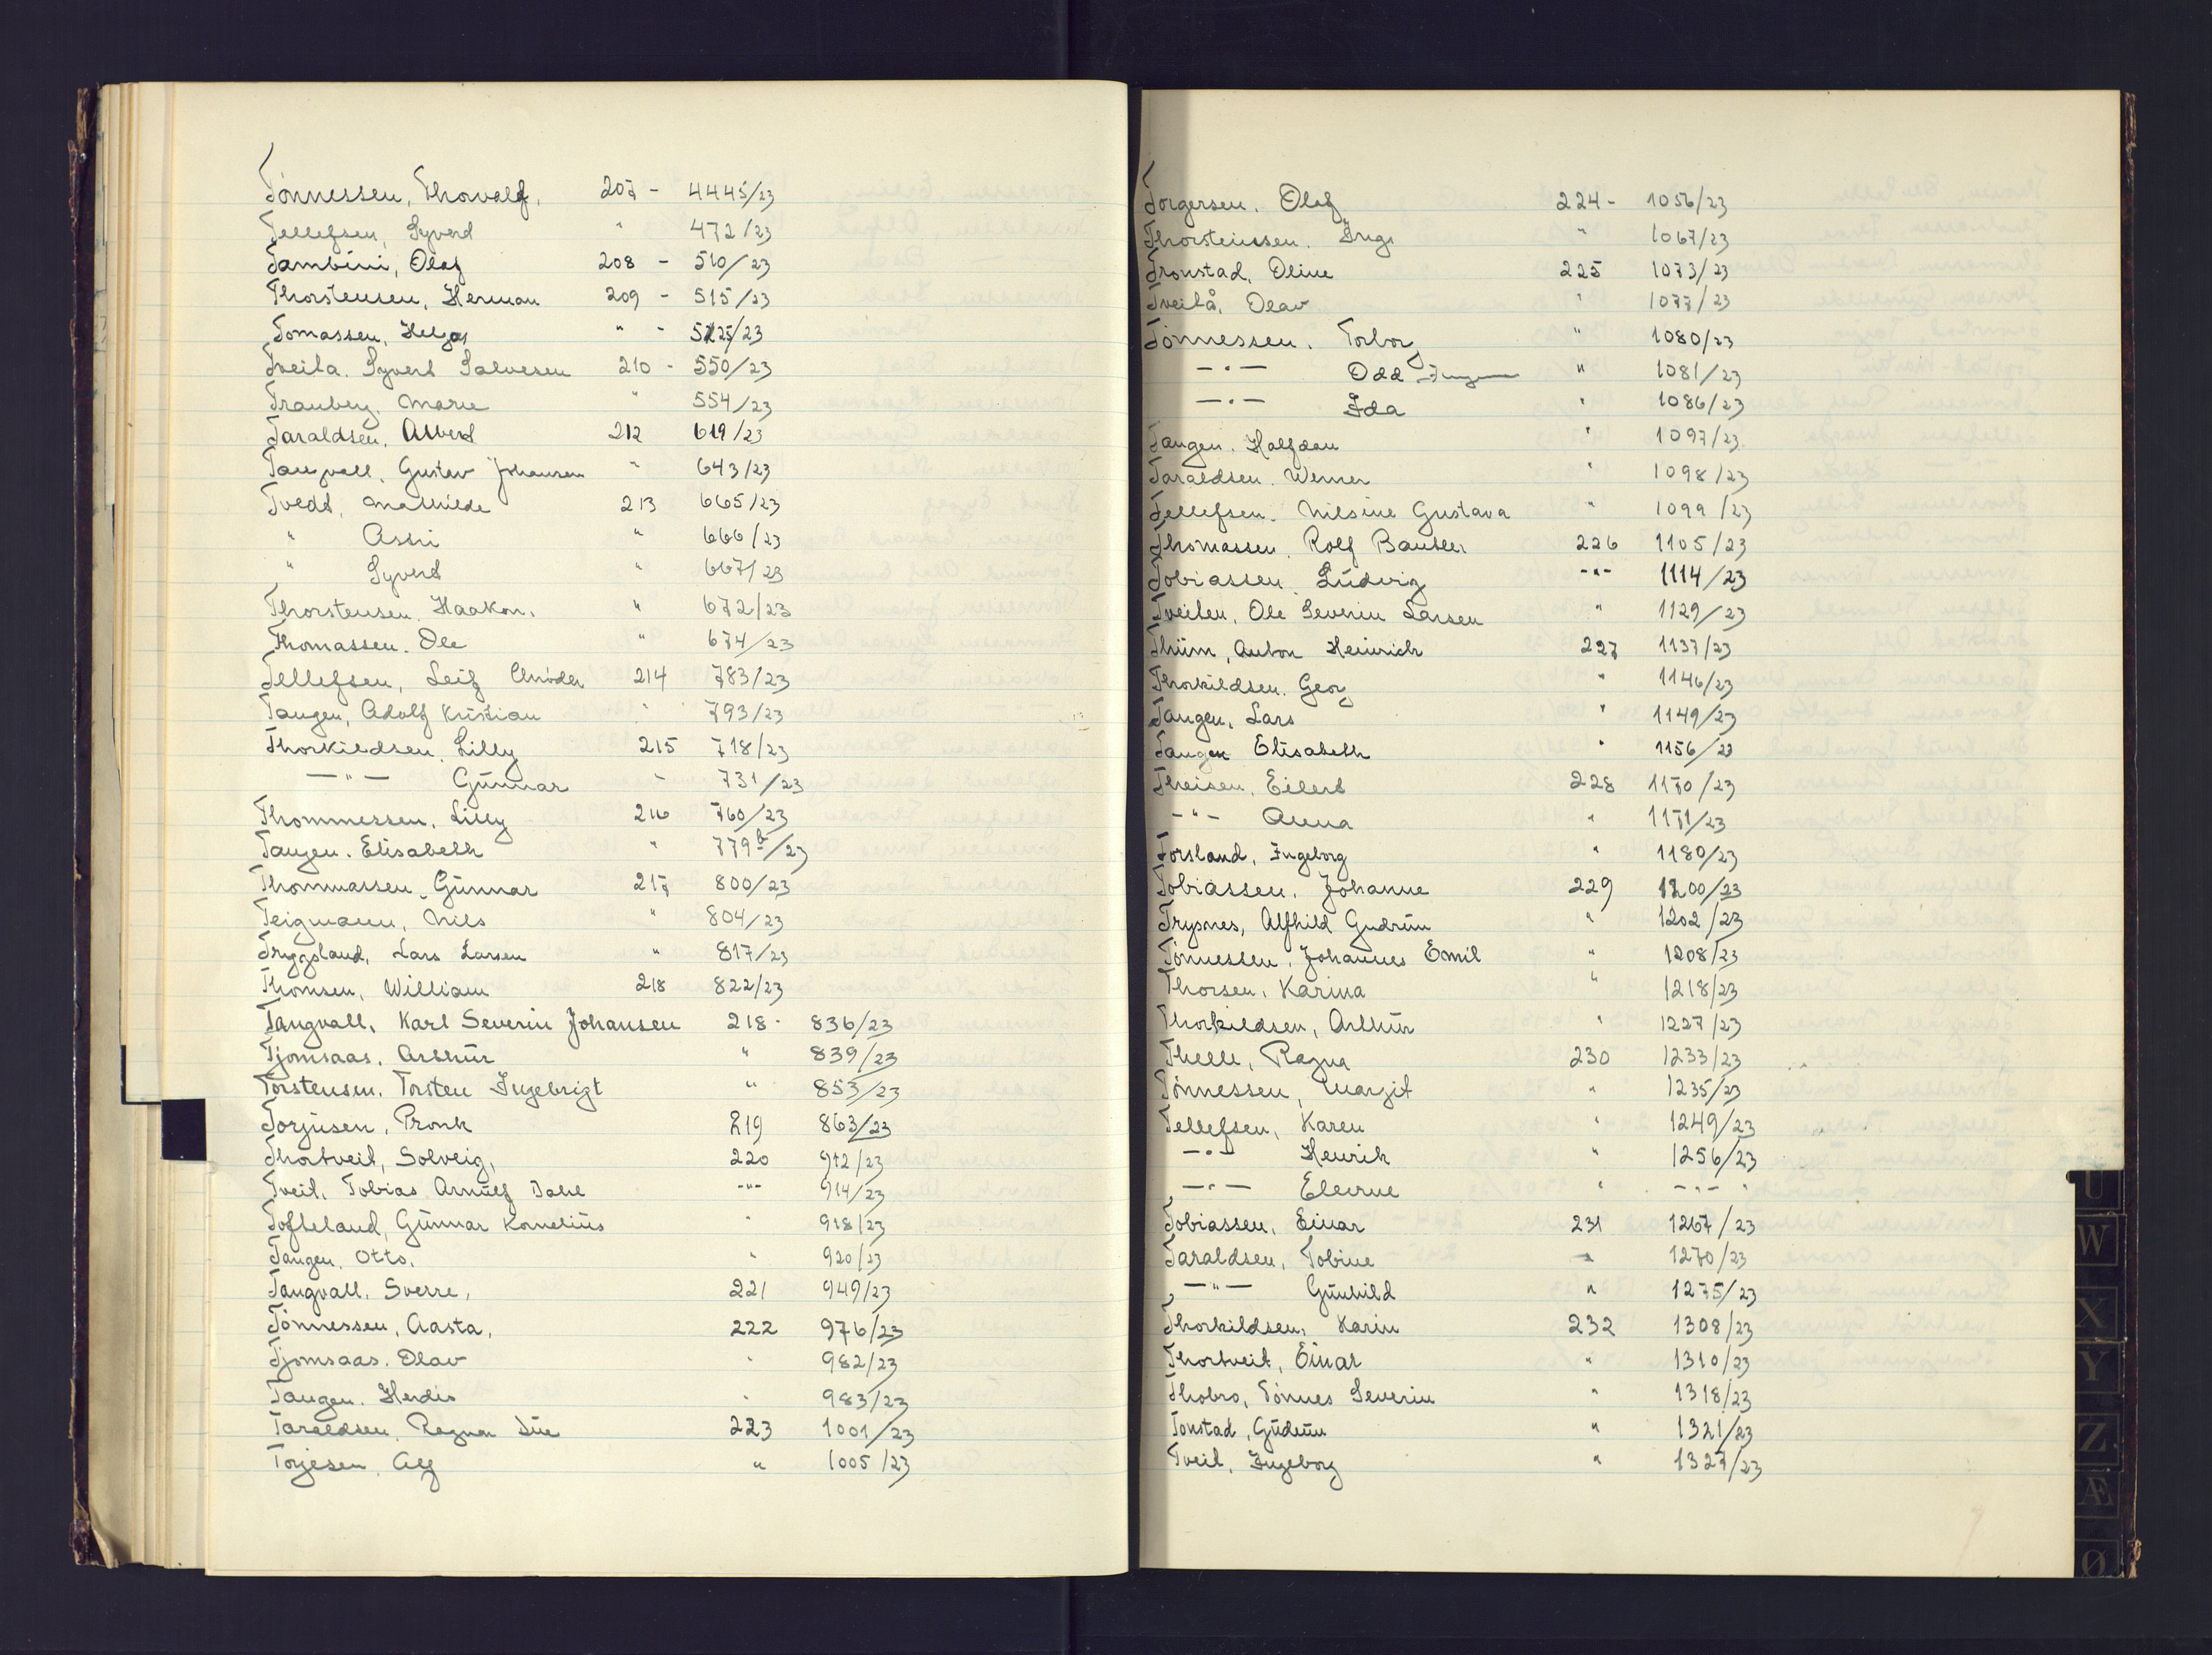 Tönnessen, Thorvalf, 207 - 4445/23
Tellefsen, Syverd " 472/23
Tambini, Olaf 208 - 510/23
Thorstensen, Herman 209 - 515/23
Tomassen, Helga " - 525/23
Tveita. Syvert Salvesen 210 - 550/23
Trauberg. Marie " 554/23
Taraldsen, Albert 212 619/23
Tangvall, Gustav Johansen " 643/23
Tvedt, Mathilde 213 665/23
" Assri " 666/23
" Syverd " 667/23
Thorstensen, Haakon, " 672/23
Thomassen. Ole " 674/23
Tellefsen, Leif 214 783/23
Tangen, Adolf Kristian " 793/23
Thorkildsen, Lilly 215 718/23
— " — Günnar " 731/23
Thommessen, Lilly 216 760/23
Tangen. Elisabeth " 779b/23
Thommassen, Günnar 217 800/23
Teigmann, Nils " 804/23
Tryggsland, Lars Larsen " 817/23
Thomsen, William 218 822/23
Tangvall, Karl Severin Johansen 218 - 836/23
Tjomsaas, Arthür " 839/23
Torstensen, Torsten Ingebrigt " 853/23
Torjüsen, Pronk 219 863/23
Thortveit, Solveig, 220 912/23
Tveit, Tobias Arnülf Dahl -"- 914/23
Tofteland, Günnar Kornelius " 918/23
Tangen, Otto, " 920/23
Tangvall, Sverre, 221 949/23
Tönnessen, Aasta, 222 976/23
Tjomsaas. Olav " 982/23
Tangen. Herdis " 983/23
Taraldsen, Ragna Düe 223 1001/23
Torjesen, Alf " 1005/23
Torgersen. Olaf 224 - 1056/23
Thorsteinssen. Inga " 1067/23
Tronstad, Oline 225 1073/23
Tveitå, Olav " 1077/23
Tönnessen, Torborg " 1080/23
— " — Odd " 1081/23
— " — Ida " 1086/23
Tangen, Halfdan " 1097/23
Taraldsen. Werner " 1098/23
Tellefsen. Nilsine Gustava " 1099/23
Thomassen, Rolf 226 1105/23
Tobiassen, Lüdvig -"- 1114/23
Tveiten, Ole Severin Larsen " 1129/23
Thüm, Anton Heinrich 227 1137/23
Thorkildsen. Georg " 1146/23
Tangen, Lars " 1149/23
Tangen Elisabeth " 1156/23
Theisen, Eilert 228 1170/23
- " - Anna " 1171/23
Torsland, Ingeborg " 1180/23
Tobiassen, Johanne 229 1200/23
Trysnes, Alfhild Gudrün " 1202/23
Tönnessen, Johannes Emil " 1208/23
Thorsen, Karina " 1218/23
Thorkildsen, Arthür " 1227/23
Thelle, Ragna 230 1233/23
Tönnessen, Margit " 1235/23
Tellefsen, Karen " 1249/23
— " — Henrik " 1256/23
— " — Elevine " — " —
Tobiassen, Einar 231 1267/23
Taraldsen, Tobine " 1270/23
— " — Günhild " 1275/23
Thorkildsen, Karin 232 1308/23
Thortveit, Einar " 1310/23
Thobro, Tönnes Severin " 1318/23
Tonstad, Güdrün " 1321/23
Tveit, Ingeborg " 1327/23
U
W
X
Y
Z
Æ
Ø